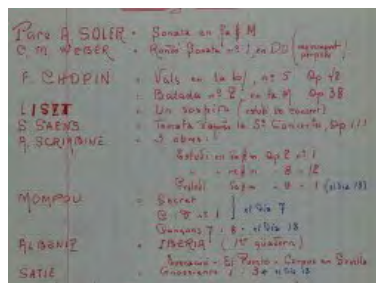 Pare A. SOLER - Sonata en fa # M
C. M. WEBER - Rondó Sonata nº 1 en DO (moviment perpetu)
F. CHOPIN - Vals en la b, nº 5 Op 42
- Balada nº 2, en fa M Op 38
LISZT - Un sospiro (estudi de concert)
S. SAENS - Tocata 5º Concierto, Op 111
A. SCRIABINE - 3 obras:
Estudi en Op 2 nº 1
- 8 - 12
Preludi
MOMPOU - Secret
nº 1 el Dia 7
Cançons 7 - 8 - el Dia 18
ALBENIZ - IBERIA (1er quadern)
Evocació - El Puerto - Corpus en Sevilla
SATIE - Gnossienne 1 - 3